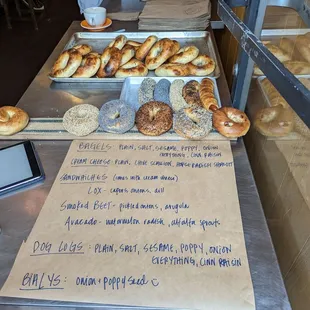 BAGELS: PLAIN, SALT, SESAME, POPPY, ONION
EVERYTHING, CINN RAISIN
CREAM CHEESE: PLAIN, CHIVE
SANDWICHES (comes with cream cheese)
LOX - capers, onions, dill
SMOKED BEET - pickled onions, arugula
Avocado - watermelon radish, alfalfa sprouts
DOG LOGS: PLAIN, SALT, SESAME, POPPY, ONION
EVERYTHING, CINN RAISIN
BIALYS: onion + poppy seed